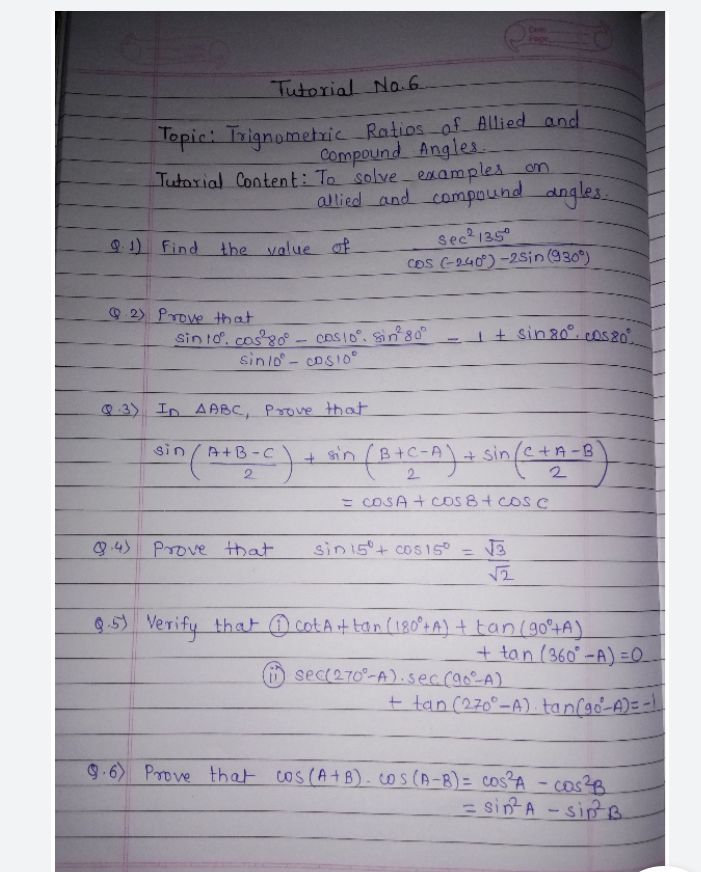 Tutorial No.6
Topic: Trignometric Ratios of Allied and
Compound Angles.
Tutorial Content: To solve examples on
allied and compound angles.
Q.1) Find the value of sec²135° / cos(-240°) - 2sin(930°)
Q.2) Prove that
sin10°. cos²80° - cos10°. sin²80° / sin10° - cos10° - 1 + sin80°. cos80°
Q.3) In ΔABC, Prove that
sin (A+B-C / 2) + sin (B+C-A / 2) + sin (C+A-B / 2)
= cosA + cosB + cosC
Q.4) Prove that sin15° + cos15° = √3 / √2
Q.5) Verify that (i) cotA + tan(180°+A) + tan(90°+A)
+ tan(360°-A) = 0
(ii) sec(270°-A). sec(90°-A)
+ tan(270°-A). tan(90°-A) = -1
Q.6) Prove that cos(A+B). cos(A-B) = cos²A - cos²B
= sin²A - sin²B